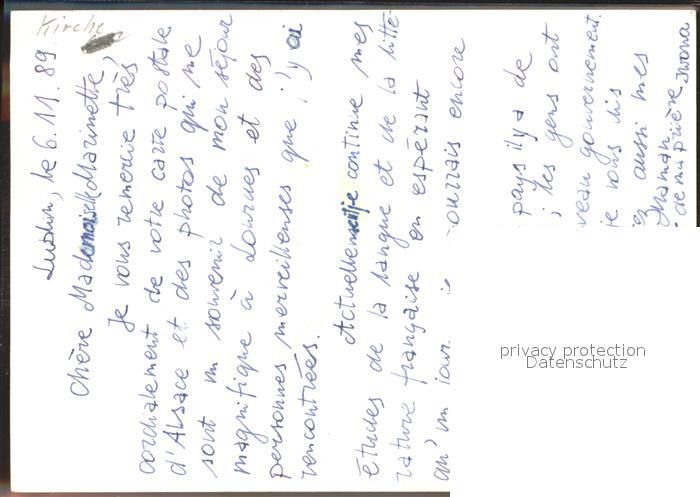 Kirche
Lublin, le 6.11.89
Chère Mademoiselle Marinette,
Je vous remercie très
cordialement de votre carte postale
d'Alsace et des photos qui me
sont un souvenir de mon séjour
magnifique à Lourdes et des
personnes merveilleuses que j'y ai
rencontrées.
Actuellement je continue mes
études de la langue et de la litté-
rature française en espérant
qu'un jour je pourrais encore
pays il y a de
les gens ont
veau gouvernement.
je vous dis
aussi mes
Maman
de ma prière Iwona
privacy protection
Datenschutz